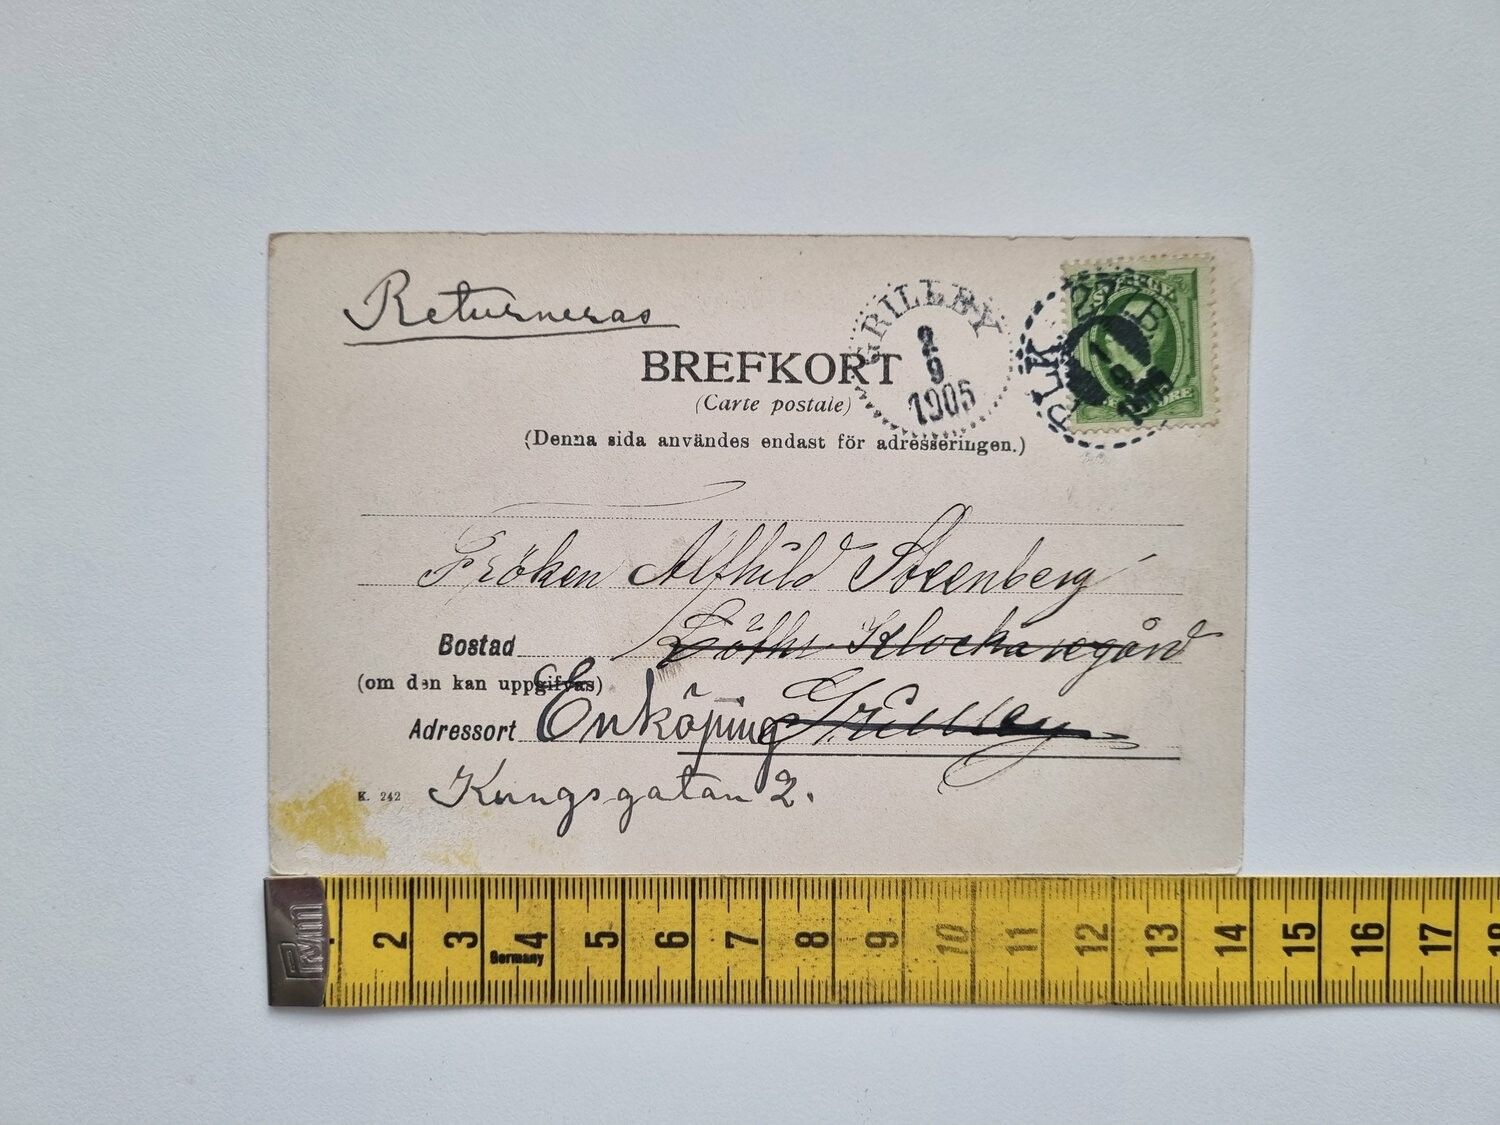 Returneras
BREFKORT
(Carte postale)
(Denna sida användes endast för adresseringen.)
GRILLBY
9
1905
PLK
Fröken Alfhild Steenberg
Bostad Löths Klockaregård
(om den kan uppgifvas)
Adressort Enköping Grillby
Kungsgatan 2.
K. 242
2 3 4 5 6 7 8 9 10 11 12 13 14 15 16 17 18
Germany